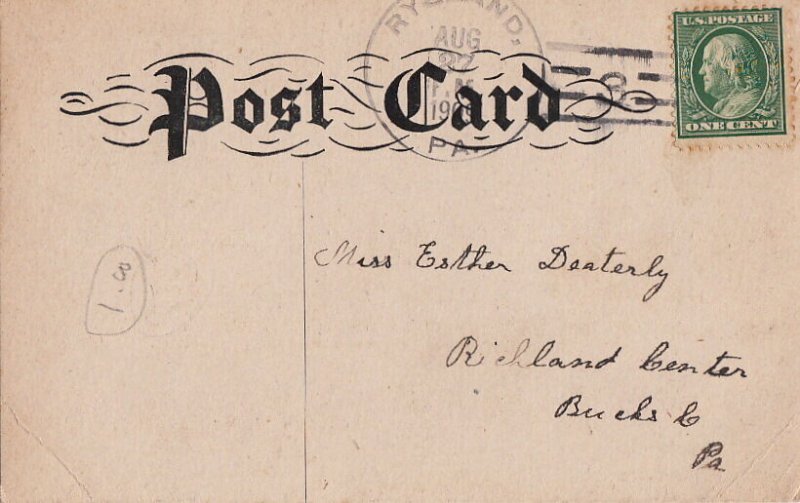 Post Card
RYDLAND,
AUG
27
P.M.
1909
PA.
3
U.S. POSTAGE
ONE CENT
Miss Esther Deaterly
Richland Center
Bucks Co
Pa
1.8